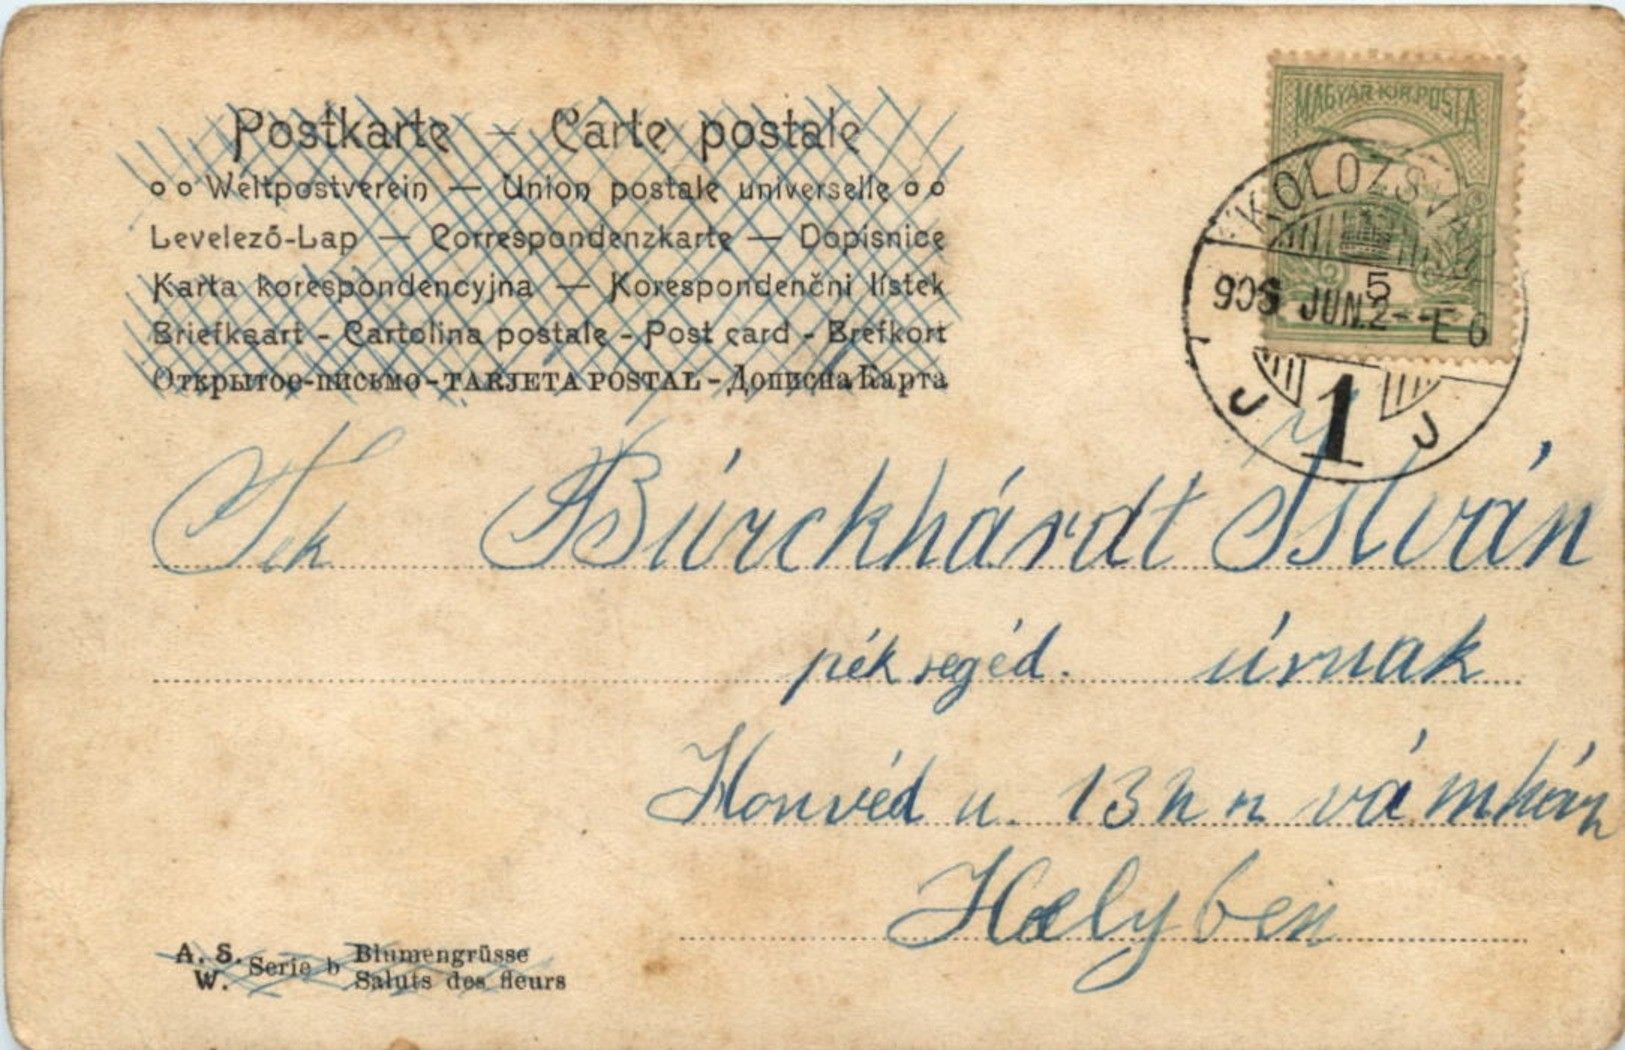 Postkarte – Carte postale
Weltpostverein — Union postale universelle
Levelező-Lap — Correspondenzkarte — Dopisnice
Karta korespondencyjna — Korespondenčni lístek
Briefkaart - Cartolina postale - Post card - Brefkort
Открытое-письмо - TARJETA POSTAL - Дописна Карта
MAGYAR KIR. POSTA
KOLOZSVÁR
5
906 JUN. 2 - E 6
J 1 J
Tek Búrckhárdt István
pék segéd. úrnak
Honvéd u. 13
Helyben
A. S. W. Serie b Blumengrüsse
Saluts des fleurs